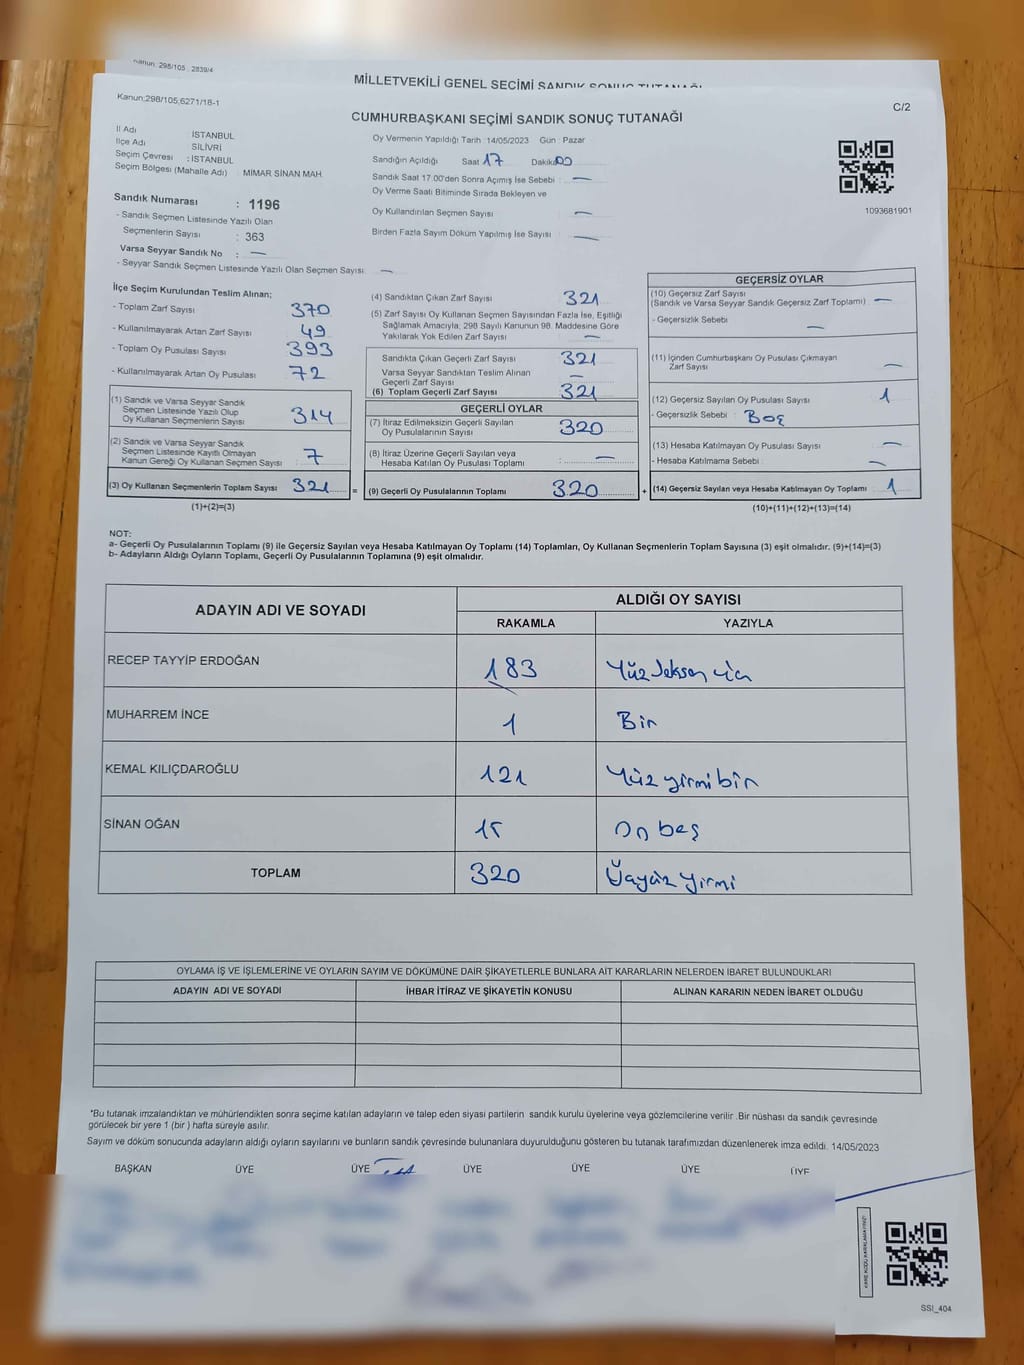 Kanun: 298/105, 2839/4
MİLLETVEKİLİ GENEL SEÇİMİ SANDIK SONUÇ TUTANAĞI
Kanun;298/105;6271/18-1
C/2
CUMHURBAŞKANI SEÇİMİ SANDIK SONUÇ TUTANAĞI
İl Adı İSTANBUL
İlçe Adı SİLİVRİ
Seçim Çevresi : İSTANBUL
Seçim Bölgesi (Mahalle Adı) : MİMAR SİNAN MAH.
Oy Vermenin Yapıldığı Tarih :14/05/2023 Gün : Pazar
Sandığın Açıldığı Saat 17 Dakika 00
Sandık Saat 17.00'den Sonra Açımış İse Sebebi : —
Oy Verme Saati Bitiminde Sırada Bekleyen ve
Oy Kullandırılan Seçmen Sayısı —
Birden Fazla Sayım Döküm Yapılmış İse Sayısı —
1093681901
Sandık Numarası : 1196
- Sandık Seçmen Listesinde Yazılı Olan
Seçmenlerin Sayısı : 363
Varsa Seyyar Sandık No : —
- Seyyar Sandık Seçmen Listesinde Yazılı Olan Seçmen Sayısı —
İlçe Seçim Kurulundan Teslim Alınan;
- Toplam Zarf Sayısı 370
- Kullanılmayarak Artan Zarf Sayısı 49
- Toplam Oy Pusulası Sayısı 393
- Kullanılmayarak Artan Oy Pusulası 72
(1) Sandık ve Varsa Seyyar Sandık
Seçmen Listesinde Yazılı Olup
Oy Kullanan Seçmenlerin Sayısı 314
(2) Sandık ve Varsa Seyyar Sandık
Seçmen Listesinde Kayıtlı Olmayan
Kanun Gereği Oy Kullanan Seçmen Sayısı : 7
(3) Oy Kullanan Seçmenlerin Toplam Sayısı 321
(1)+(2)=(3)
(4) Sandıktan Çıkan Zarf Sayısı 321
(5) Zarf Sayısı Oy Kullanan Seçmen Sayısından Fazla İse, Eşitliği
Sağlamak Amacıyla; 298 Sayılı Kanunun 98. Maddesine Göre
Yakılarak Yok Edilen Zarf Sayısı —
Sandıkta Çıkan Geçerli Zarf Sayısı 321
Varsa Seyyar Sandıktan Teslim Alınan
Geçerli Zarf Sayısı —
(6) Toplam Geçerli Zarf Sayısı 321
GEÇERLİ OYLAR
(7) İtiraz Edilmeksizin Geçerli Sayılan
Oy Pusulalarının Sayısı 320
(8) İtiraz Üzerine Geçerli Sayılan veya
Hesaba Katılan Oy Pusulası Toplamı : —
= (9) Geçerli Oy Pusulalarının Toplamı 320
GEÇERSİZ OYLAR
(10) Geçersiz Zarf Sayısı
(Sandık ve Varsa Seyyar Sandık Geçersiz Zarf Toplamı) —
- Geçersizlik Sebebi : —
(11) İçinden Cumhurbaşkanı Oy Pusulası Çıkmayan
Zarf Sayısı —
(12) Geçersiz Sayılan Oy Pusulası Sayısı 1
- Geçersizlik Sebebi : Boş
(13) Hesaba Katılmayan Oy Pusulası Sayısı —
- Hesaba Katılmama Sebebi : —
+ (14) Geçersiz Sayılan veya Hesaba Katılmayan Oy Toplamı 1
(10)+(11)+(12)+(13)=(14)
NOT:
a- Geçerli Oy Pusulalarının Toplamı (9) ile Geçersiz Sayılan veya Hesaba Katılmayan Oy Toplamı (14) Toplamları, Oy Kullanan Seçmenlerin Toplam Sayısına (3) eşit olmalıdır. (9)+(14)=(3)
b- Adayların Aldığı Oyların Toplamı, Geçerli Oy Pusulalarının Toplamına (9) eşit olmalıdır.
ADAYIN ADI VE SOYADI
ALDIĞI OY SAYISI
RAKAMLA YAZIYLA
RECEP TAYYİP ERDOĞAN 183 Yüz seksen üç
MUHARREM İNCE 1 Bir
KEMAL KILIÇDAROĞLU 121 Yüz yirmi bir
SİNAN OĞAN 15 On beş
TOPLAM 320 Üçyüz yirmi
OYLAMA İŞ VE İŞLEMLERİNE VE OYLARIN SAYIM VE DÖKÜMÜNE DAİR ŞİKAYETLERLE BUNLARA AİT KARARLARIN NELERDEN İBARET BULUNDUKLARI
ADAYIN ADI VE SOYADI İHBAR İTİRAZ VE ŞİKAYETİN KONUSU ALINAN KARARIN NEDEN İBARET OLDUĞU
*Bu tutanak imzalandıktan ve mühürlendikten sonra seçime katılan adayların ve talep eden siyasi partilerin sandık kurulu üyelerine veya gözlemcilerine verilir .Bir nüshası da sandık çevresinde
görülecek bir yere 1 (bir ) hafta süreyle asılır.
Sayım ve döküm sonucunda adayların aldığı oyların sayılarını ve bunların sandık çevresinde bulunanlara duyurulduğunu gösteren bu tutanak tarafımızdan düzenlenerek imza edildi. 14/05/2023
BAŞKAN ÜYE ÜYE ÜYE ÜYE ÜYE ÜYE
KARE KODU KARALAMAYINIZ!
SSI_404